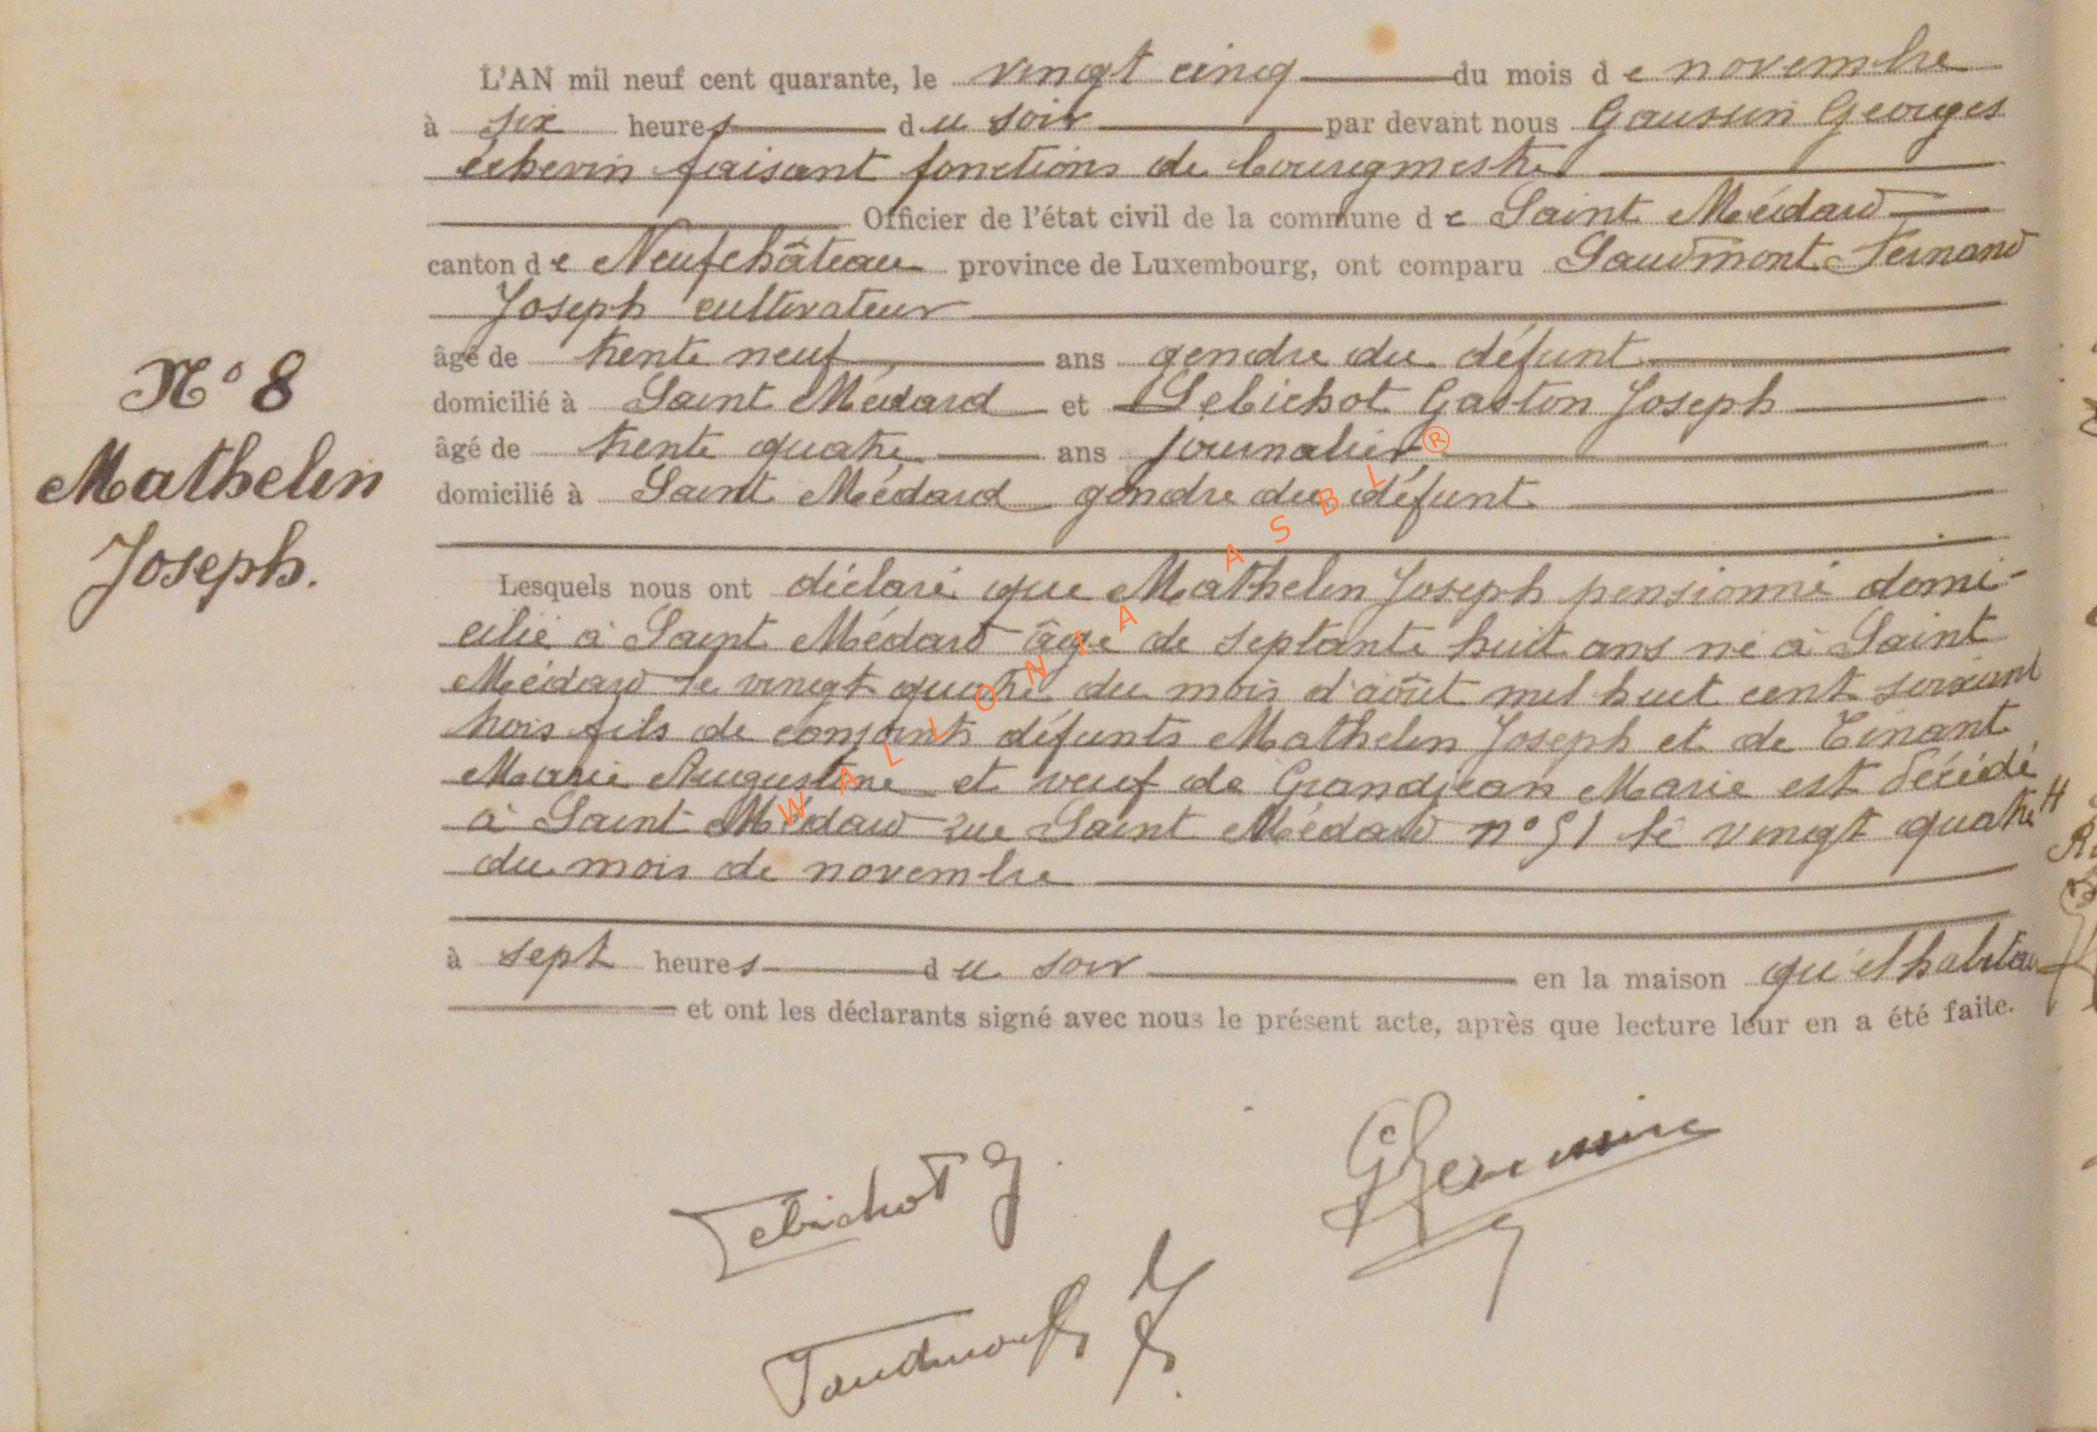 L'AN mil neuf cent quarante, le vingt cinq du mois de novembre
à six heures du soir par devant nous Georges
échevin faisant fonctions de bourgmestre
Officier de l'état civil de la commune de Saint Médard
canton de Neufchâteau province de Luxembourg, ont comparu Fernand
Joseph cultivateur
âgé de trente neuf ans gendre du défunt
domicilié à Saint Médard et Lebichot Gaston Joseph
âgé de trente quatre ans journalier
domicilié à Saint Médard gendre du défunt
N° 8
Mathelin
Joseph.
Lesquels nous ont déclaré que Mathelin Joseph pensionné domi-
cilié à Saint Médard âgé de septante huit ans né à Saint
Médard le vingt quatre du mois d'août mil huit cent soixant
trois fils de conjoints défunts Mathelin Joseph et de Tinant
Marie Augustine et veuf de Grandjean Marie est décédé
à Saint Médard rue Saint Médard n° 51 le vingt quatre
du mois de novembre
à sept heures du soir en la maison qu'il habitau
et ont les déclarants signé avec nous le présent acte, après que lecture leur en a été faite.
Lebichot G
WALLONIA ASBL ®